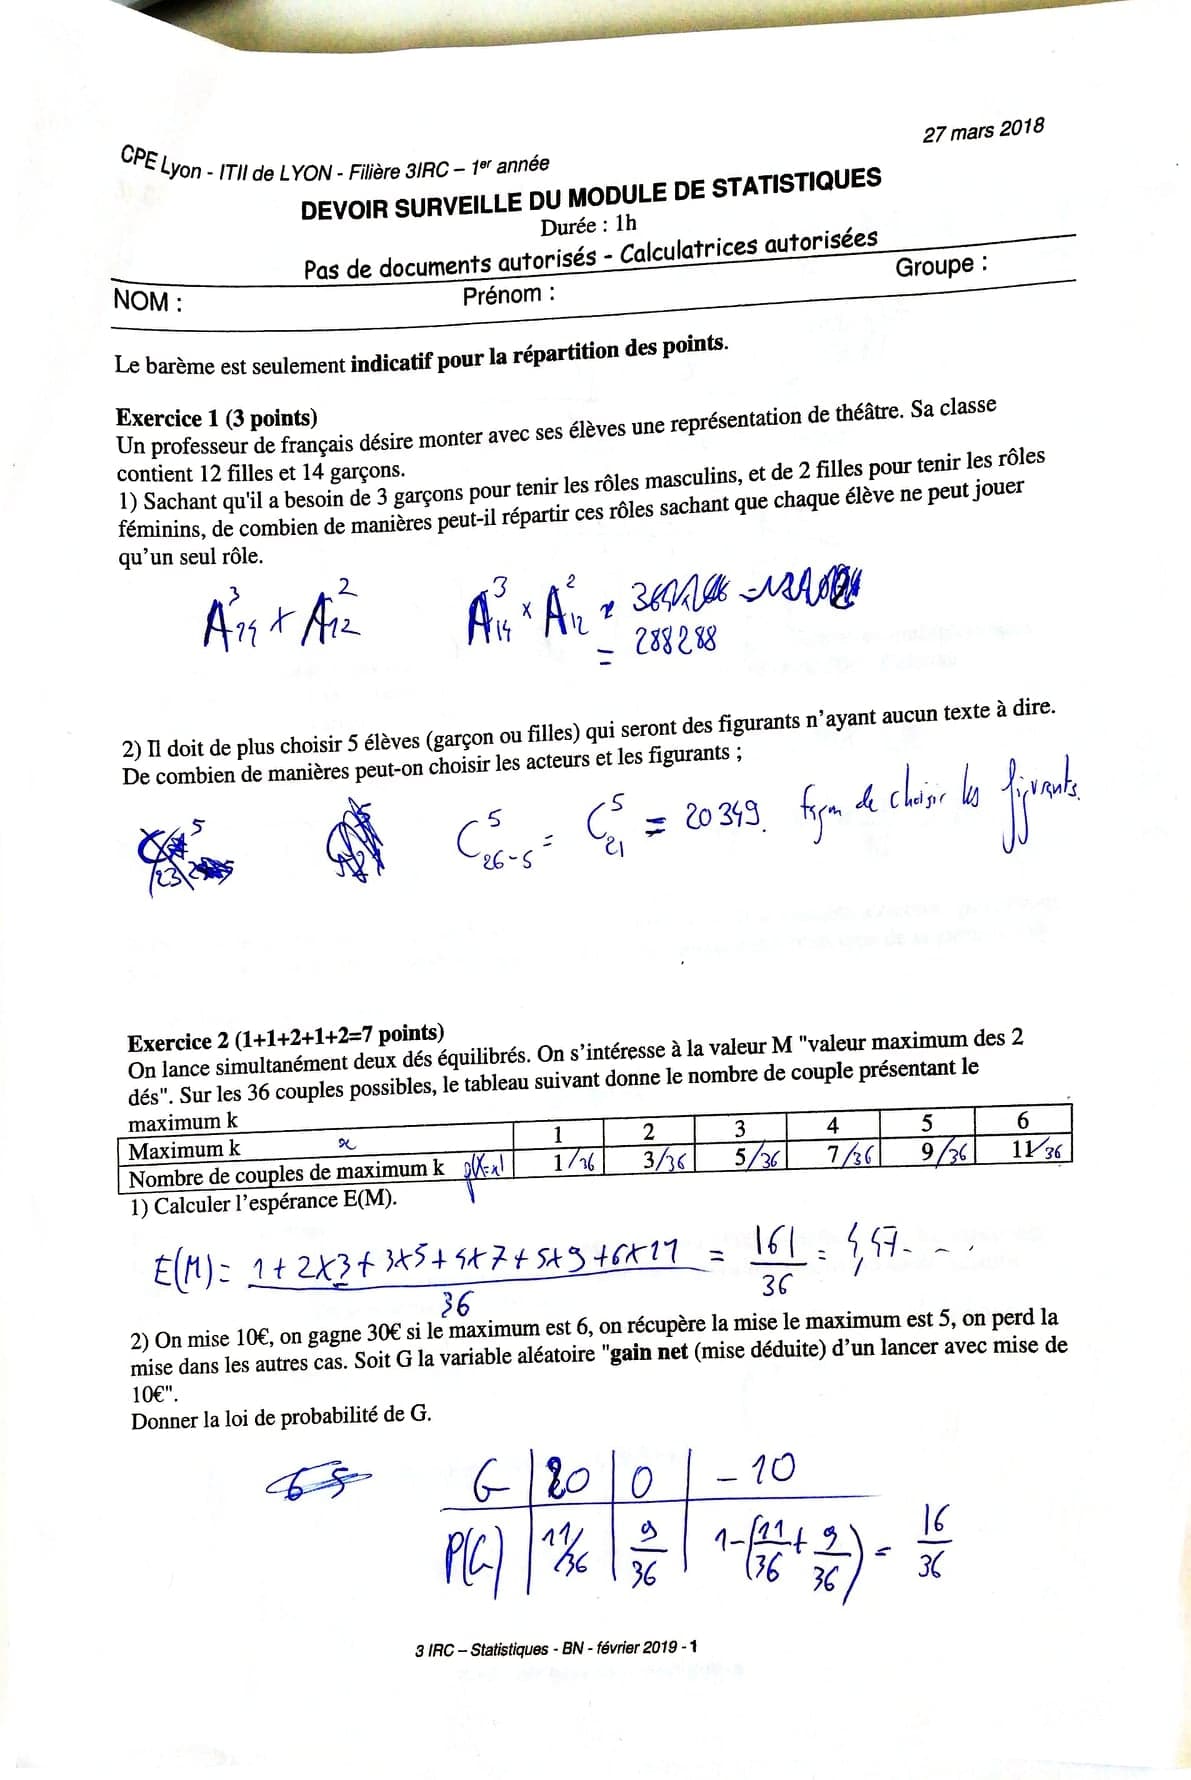 27 mars 2018
CPE Lyon - ITII de LYON - Filière 3IRC – 1er année
DEVOIR SURVEILLE DU MODULE DE STATISTIQUES
Durée : 1h
Pas de documents autorisés - Calculatrices autorisées
NOM : Prénom : Groupe :
Le barème est seulement indicatif pour la répartition des points.
Exercice 1 (3 points)
Un professeur de français désire monter avec ses élèves une représentation de théâtre. Sa classe
contient 12 filles et 14 garçons.
1) Sachant qu'il a besoin de 3 garçons pour tenir les rôles masculins, et de 2 filles pour tenir les rôles
féminins, de combien de manières peut-il répartir ces rôles sachant que chaque élève ne peut jouer
qu'un seul rôle.
A₁₄³ + A₁₂² A₁₄³ × A₁₂² =
= 288288
2) Il doit de plus choisir 5 élèves (garçon ou filles) qui seront des figurants n'ayant aucun texte à dire.
De combien de manières peut-on choisir les acteurs et les figurants ;
C₂₆₋₅⁵ = C₂₁⁵ = 20349. façon de choisir les figurants.
Exercice 2 (1+1+2+1+2=7 points)
On lance simultanément deux dés équilibrés. On s'intéresse à la valeur M "valeur maximum des 2
dés". Sur les 36 couples possibles, le tableau suivant donne le nombre de couple présentant le
maximum k
Maximum k x 1 2 3 4 5 6
Nombre de couples de maximum k p(X=x) 1/36 3/36 5/36 7/36 9/36 11/36
1) Calculer l'espérance E(M).
E(M) = (1+2×3+3×5+4×7+5×9+6×11)/36 = 161/36 = 4,47...
2) On mise 10€, on gagne 30€ si le maximum est 6, on récupère la mise le maximum est 5, on perd la
mise dans les autres cas. Soit G la variable aléatoire "gain net (mise déduite) d'un lancer avec mise de
10€".
Donner la loi de probabilité de G.
G | 20 | 0 | -10
P(G) | 11/36 | 9/36 | 1-(11/36 + 9/36) = 16/36
3 IRC – Statistiques - BN - février 2019 - 1